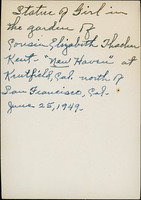 Statue of Girl in
the garden of
Cousin Elizabeth Thacher
Kent - "New Haven" at
Kentfield, Cal. north of
San Francisco, Cal.
June 25, 1949.